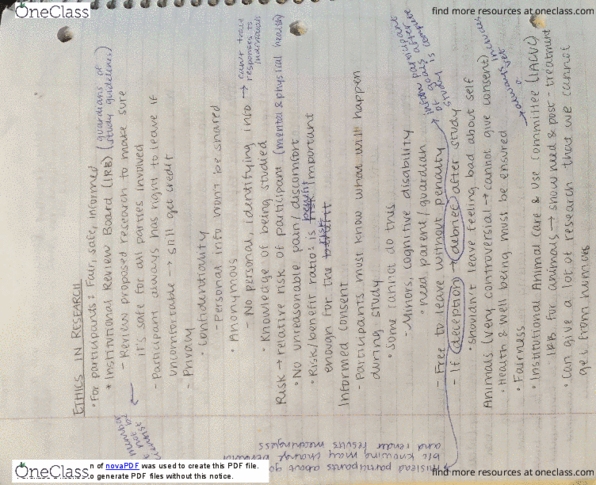 OneClass
find more resources at oneclass.com
ETHICS IN RESEARCH
• For participants: Fair, safe, informed
• Institutional Review Board (IRB) (guardians of study guidelines)
- Review proposed research to make sure
it's safe for all parties involved
- Participant always has right to leave if
uncomfortable → still get credit
- Privacy
• Confidentiality
- Personal info won't be shared
• Anonymous
- No personal, identifying info → can't trace
responses to
individual
• Knowledge of being studied
Risk → relative risk of participant (mental & physical health)
• No unreasonable pain/discomfort
• Risk/benefit ratio: is risk important
enough for the benefit
Informed consent
- Participants must know what will happen
during study
• Some cannot do this
- Minors, cognitive disability
• need parent/guardian
- Free to leave without penalty
- If deception → debrief after study
inform participant
of goals after
study is
• Shouldn't leave feeling bad about self
Animals (very controversial → cannot give consent)
• Health & well being must be ensured
• Fairness
• Institutional Animal Care & Use Committee (IACUC)
IRB for animals → show need & post-treatment
• Can give a lot of research that we cannot
get from humans
mislead participants about
knowing may change
and render results meaningless
OneClass
n of novaPDF was used to create this PDF file.
o generate PDF files without this notice.
find more resources at oneclass.com